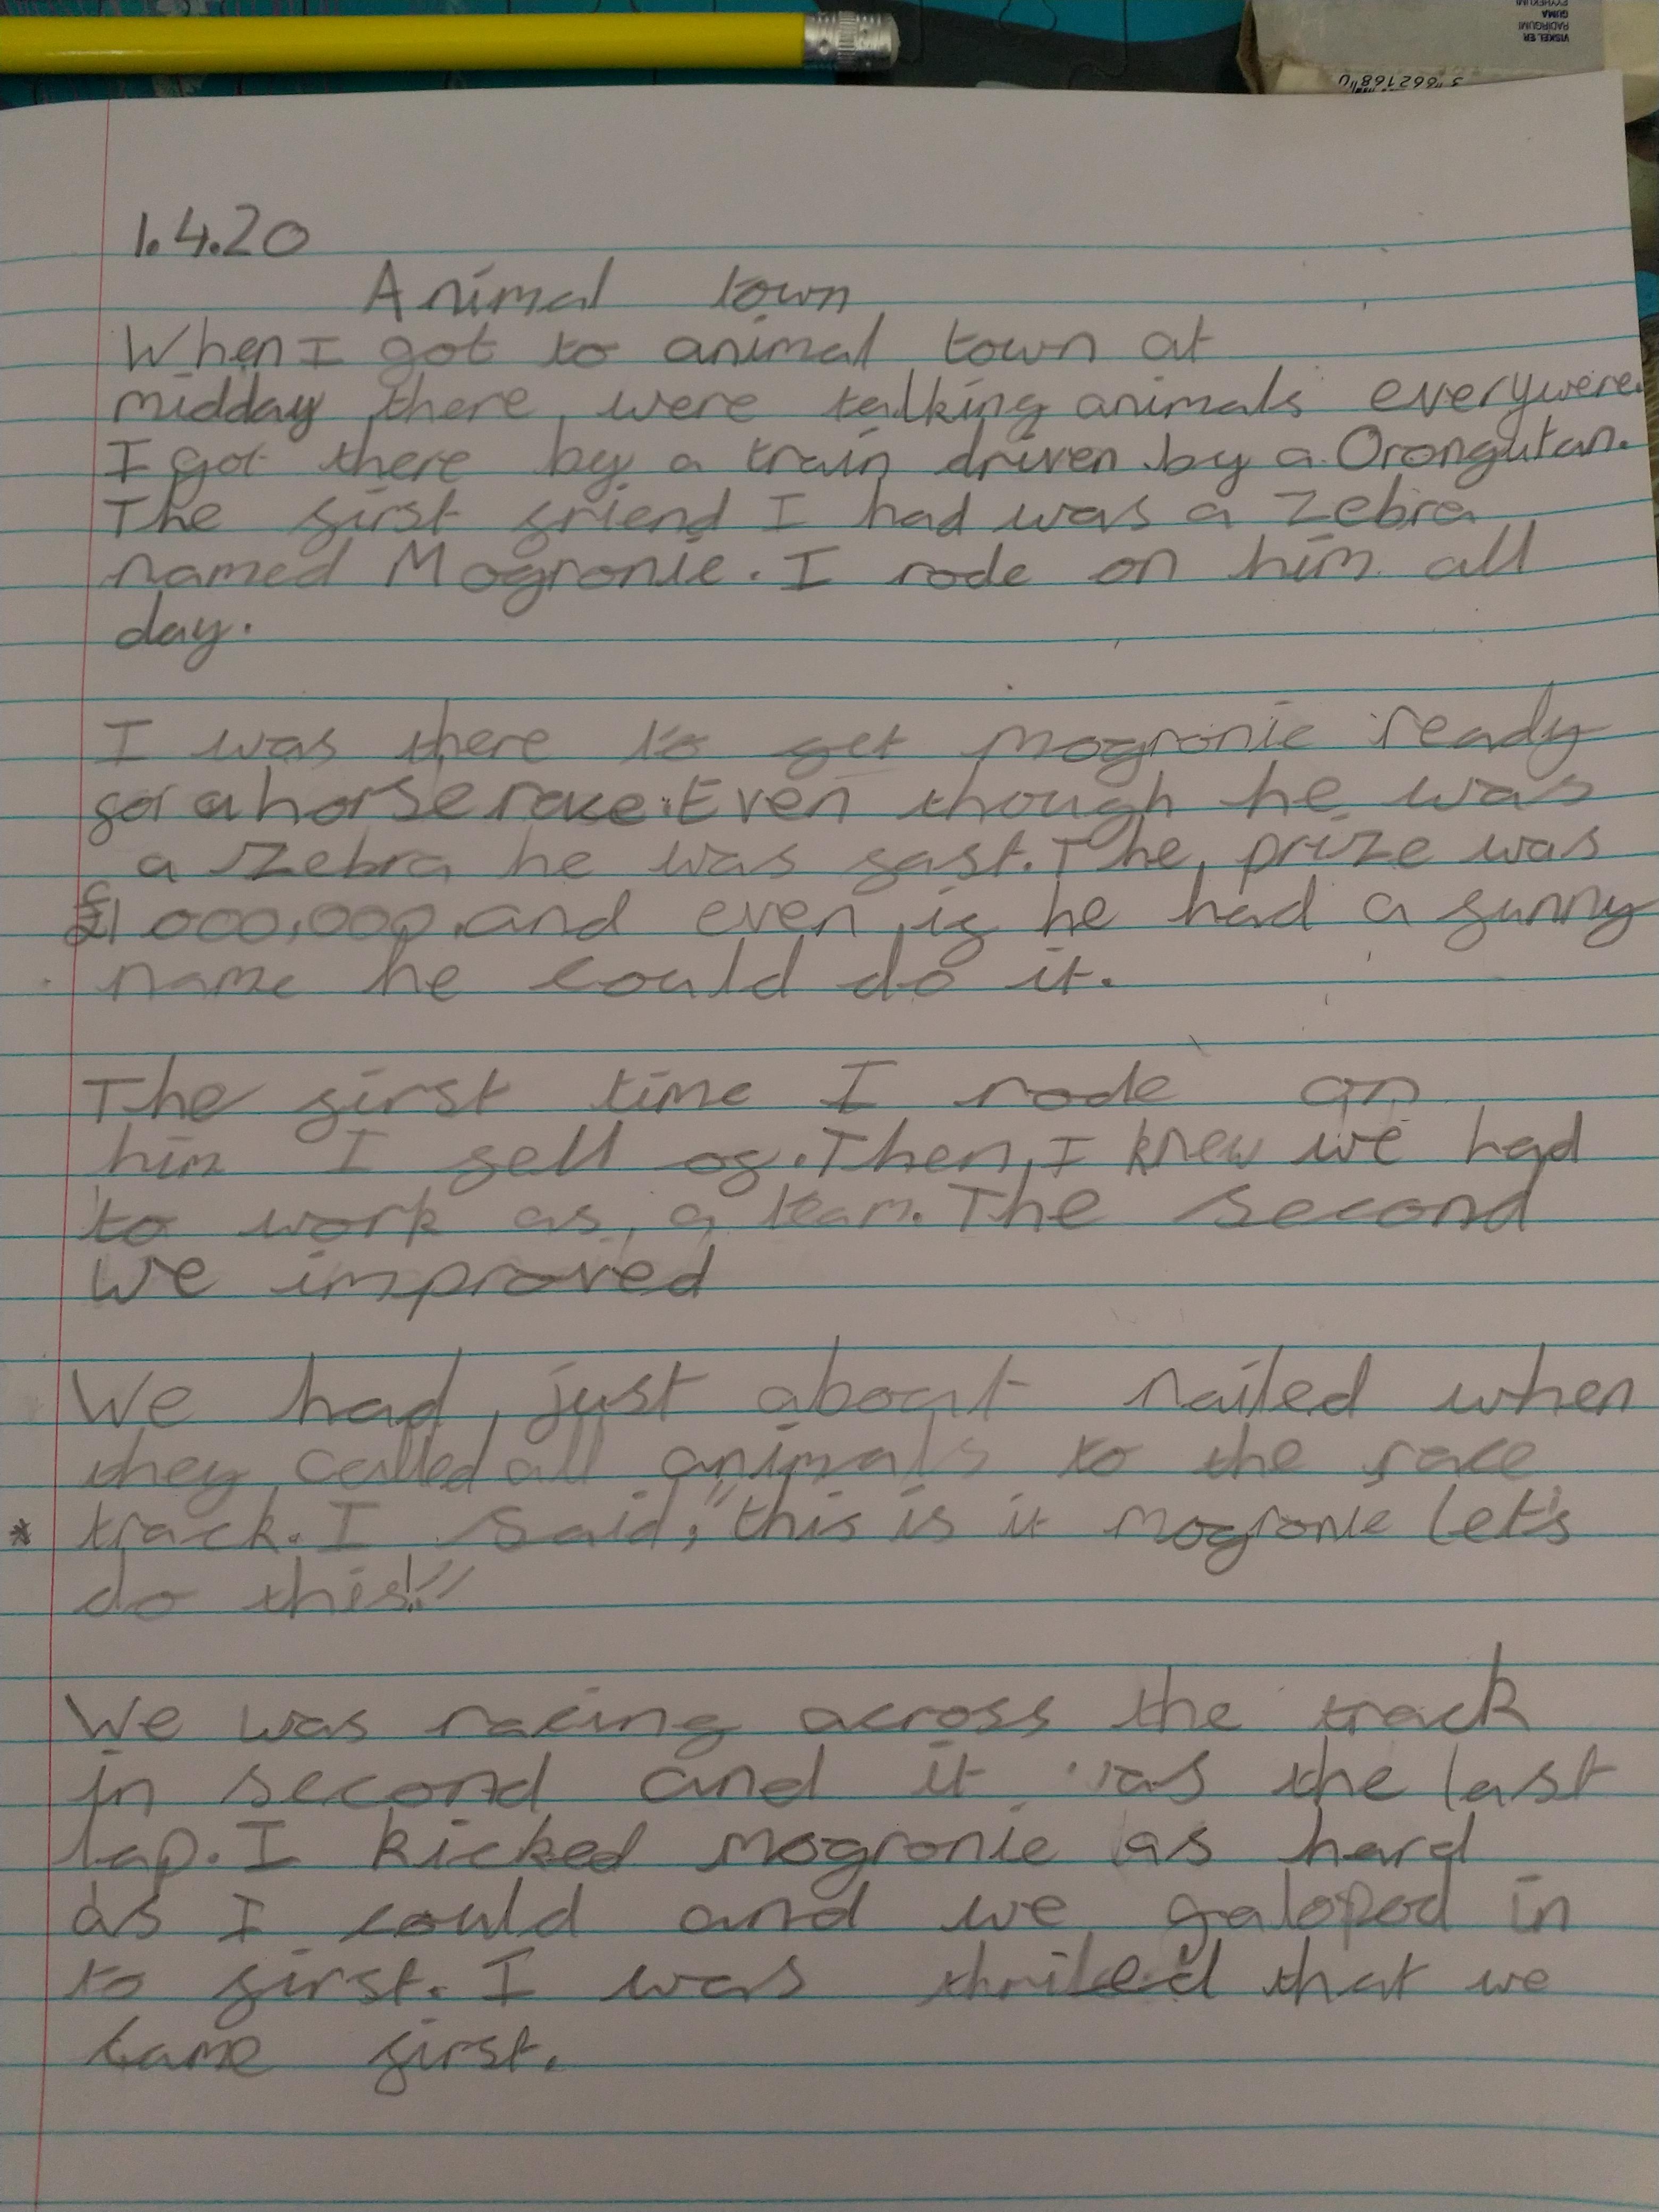 VISKELÆR
RADIRGUMI
GUMA
1.4.20
Animal town
When I got to animal town at
midday there were talking animals everywere.
I got there by a train driven by a Orongutan.
The first friend I had was a Zebra
named Mogronie. I rode on him all
day.
I was there to get mogronie ready
for a horse race. Even though he was
a Zebra he was fast. The prize was
£1000,000 and even if he had a funny
name he could do it.
The first time I rode on
him I fell of. Then I knew we had
to work as a team. The second
we improved
We had just about nailed when
they called all animals to the race
* track. I said, "this is it mogronie let's
do this!"
We was racing across the track
in second and it was the last
lap. I kicked mogronie as hard
as I could and we galoped in
to first. I was thrilled that we
came first.